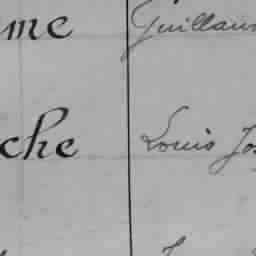 me Guillaum
che Louis Jos